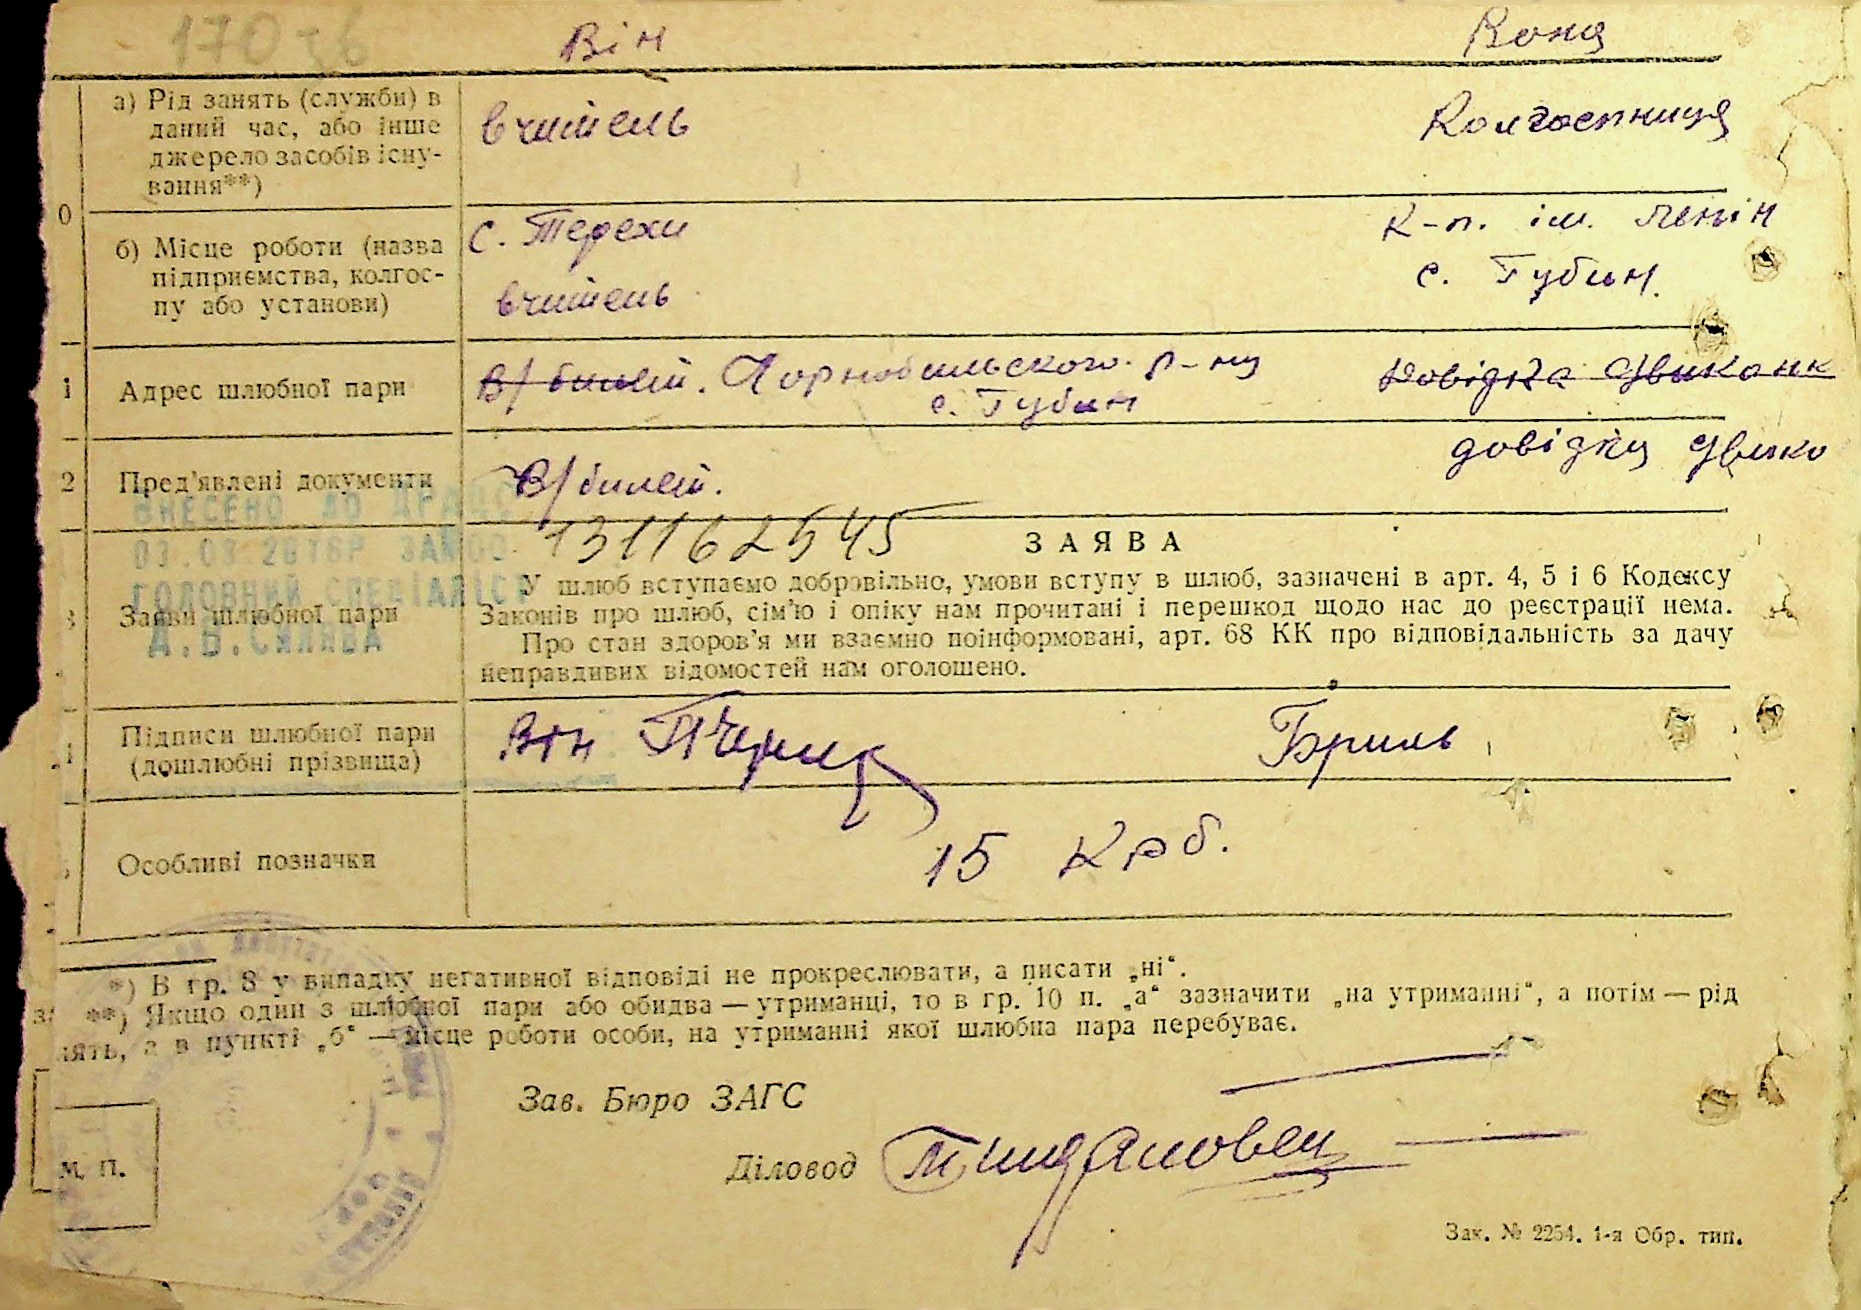 170 зб
Він Вона
а) Рід занять (служби) в
даний час, або інше
джерело засобів існу-
вання**)
вчитель Колгоспниця
0
б) Місце роботи (назва
підприємства, колгос-
пу або установи)
с. Терехи К-п. ім. Ленін
вчитель с. Губин
1 Адрес шлюбної пари
В/билет. Чорнобильського р-ну Довідка
с. Губин
2 Пред'явлені документи В/билет. довідка
ВНЕСЕНО ДО ДРАЦС
ГОЛОВНИЙ СПЕЦІАЛІСТ
131162545
ЗАЯВА
3 Заяви шлюбної пари
У шлюб вступаємо добровільно, умови вступу в шлюб, зазначені в арт. 4, 5 і 6 Кодексу
Законів про шлюб, сім'ю і опіку нам прочитані і перешкод щодо нас до реєстрації нема.
Про стан здоров'я ми взаємно поінформовані, арт. 68 КК про відповідальність за дачу
неправдивих відомостей нам оголошено.
Підписи шлюбної пари
(дошлюбні прізвища)
Він Бриль
Особливі позначки 15 крб.
*) В гр. 8 у випадку негативної відповіді не прокреслювати, а писати „ні“.
**) Якщо один з шлюбної пари або обидва — утриманці, то в гр. 10 п. „а“ зазначити „на утриманні“, а потім — рід
нять, а в пункті „б“ — місце роботи особи, на утриманні якої шлюбна пара перебуває.
Зав. Бюро ЗАГС
Діловод
М. П.
Зак. № 2254. 1-я Обр. тип.